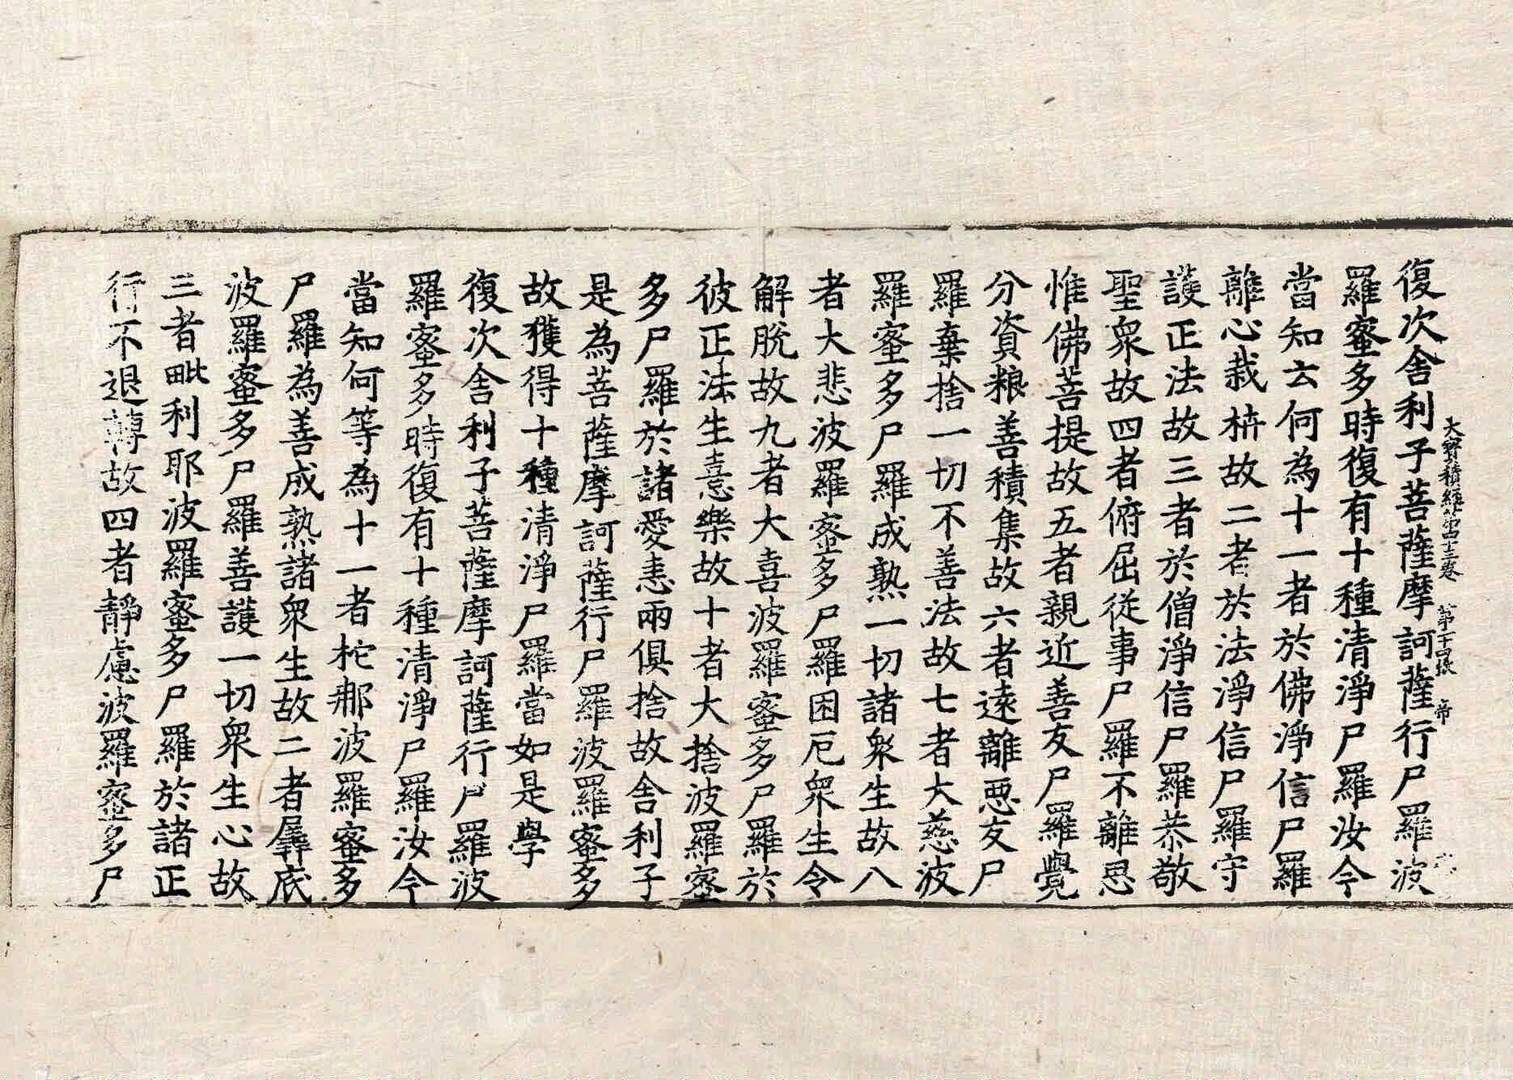 大寶積經第四十三卷 第十四張 帝
復次舍利子菩薩摩訶薩行尸羅波
羅蜜多時復有十種清淨尸羅汝今
當知云何為十一者於佛淨信尸羅
離心栽枿故二者於法淨信尸羅守
護正法故三者於僧淨信尸羅恭敬
聖衆故四者俯屈從事尸羅不離思
惟佛菩提故五者親近善友尸羅覺
分資粮善積集故六者遠離惡友尸
羅棄捨一切不善法故七者大慈波
羅蜜多尸羅成熟一切諸衆生故八
者大悲波羅蜜多尸羅困厄衆生令
解脫故九者大喜波羅蜜多尸羅於
彼正法生憙樂故十者大捨波羅蜜
多尸羅於諸愛恚兩俱捨故舍利子
是為菩薩摩訶薩行尸羅波羅蜜多
故獲得十種清淨尸羅當如是學
復次舍利子菩薩摩訶薩行尸羅波
羅蜜多時復有十種清淨尸羅汝今
當知何等為十一者柁那波羅蜜多
尸羅為善成熟諸衆生故二者羼底
波羅蜜多尸羅善護一切衆生心故
三者毗利耶波羅蜜多尸羅於諸正
行不退轉故四者靜慮波羅蜜多尸